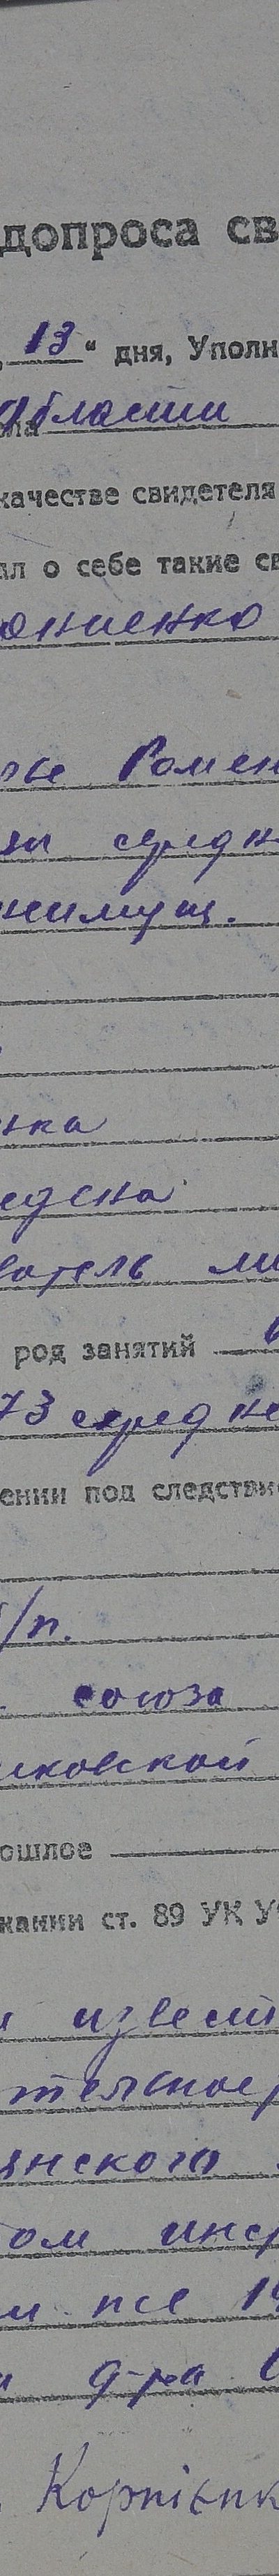 допроса св
„ 13 “ дня, Уполн
области
качестве свидетеля
ал о себе такие св
ониенко
Ромен
средн
неимущ.
нка
едена
ватель ли
род занятий
73 средне
ении под следстви
/п.
союза
иковской
ошлое
жании ст. 89 УК У
и извест
нского
ом
и же 19
и д-ра
Корнієнк